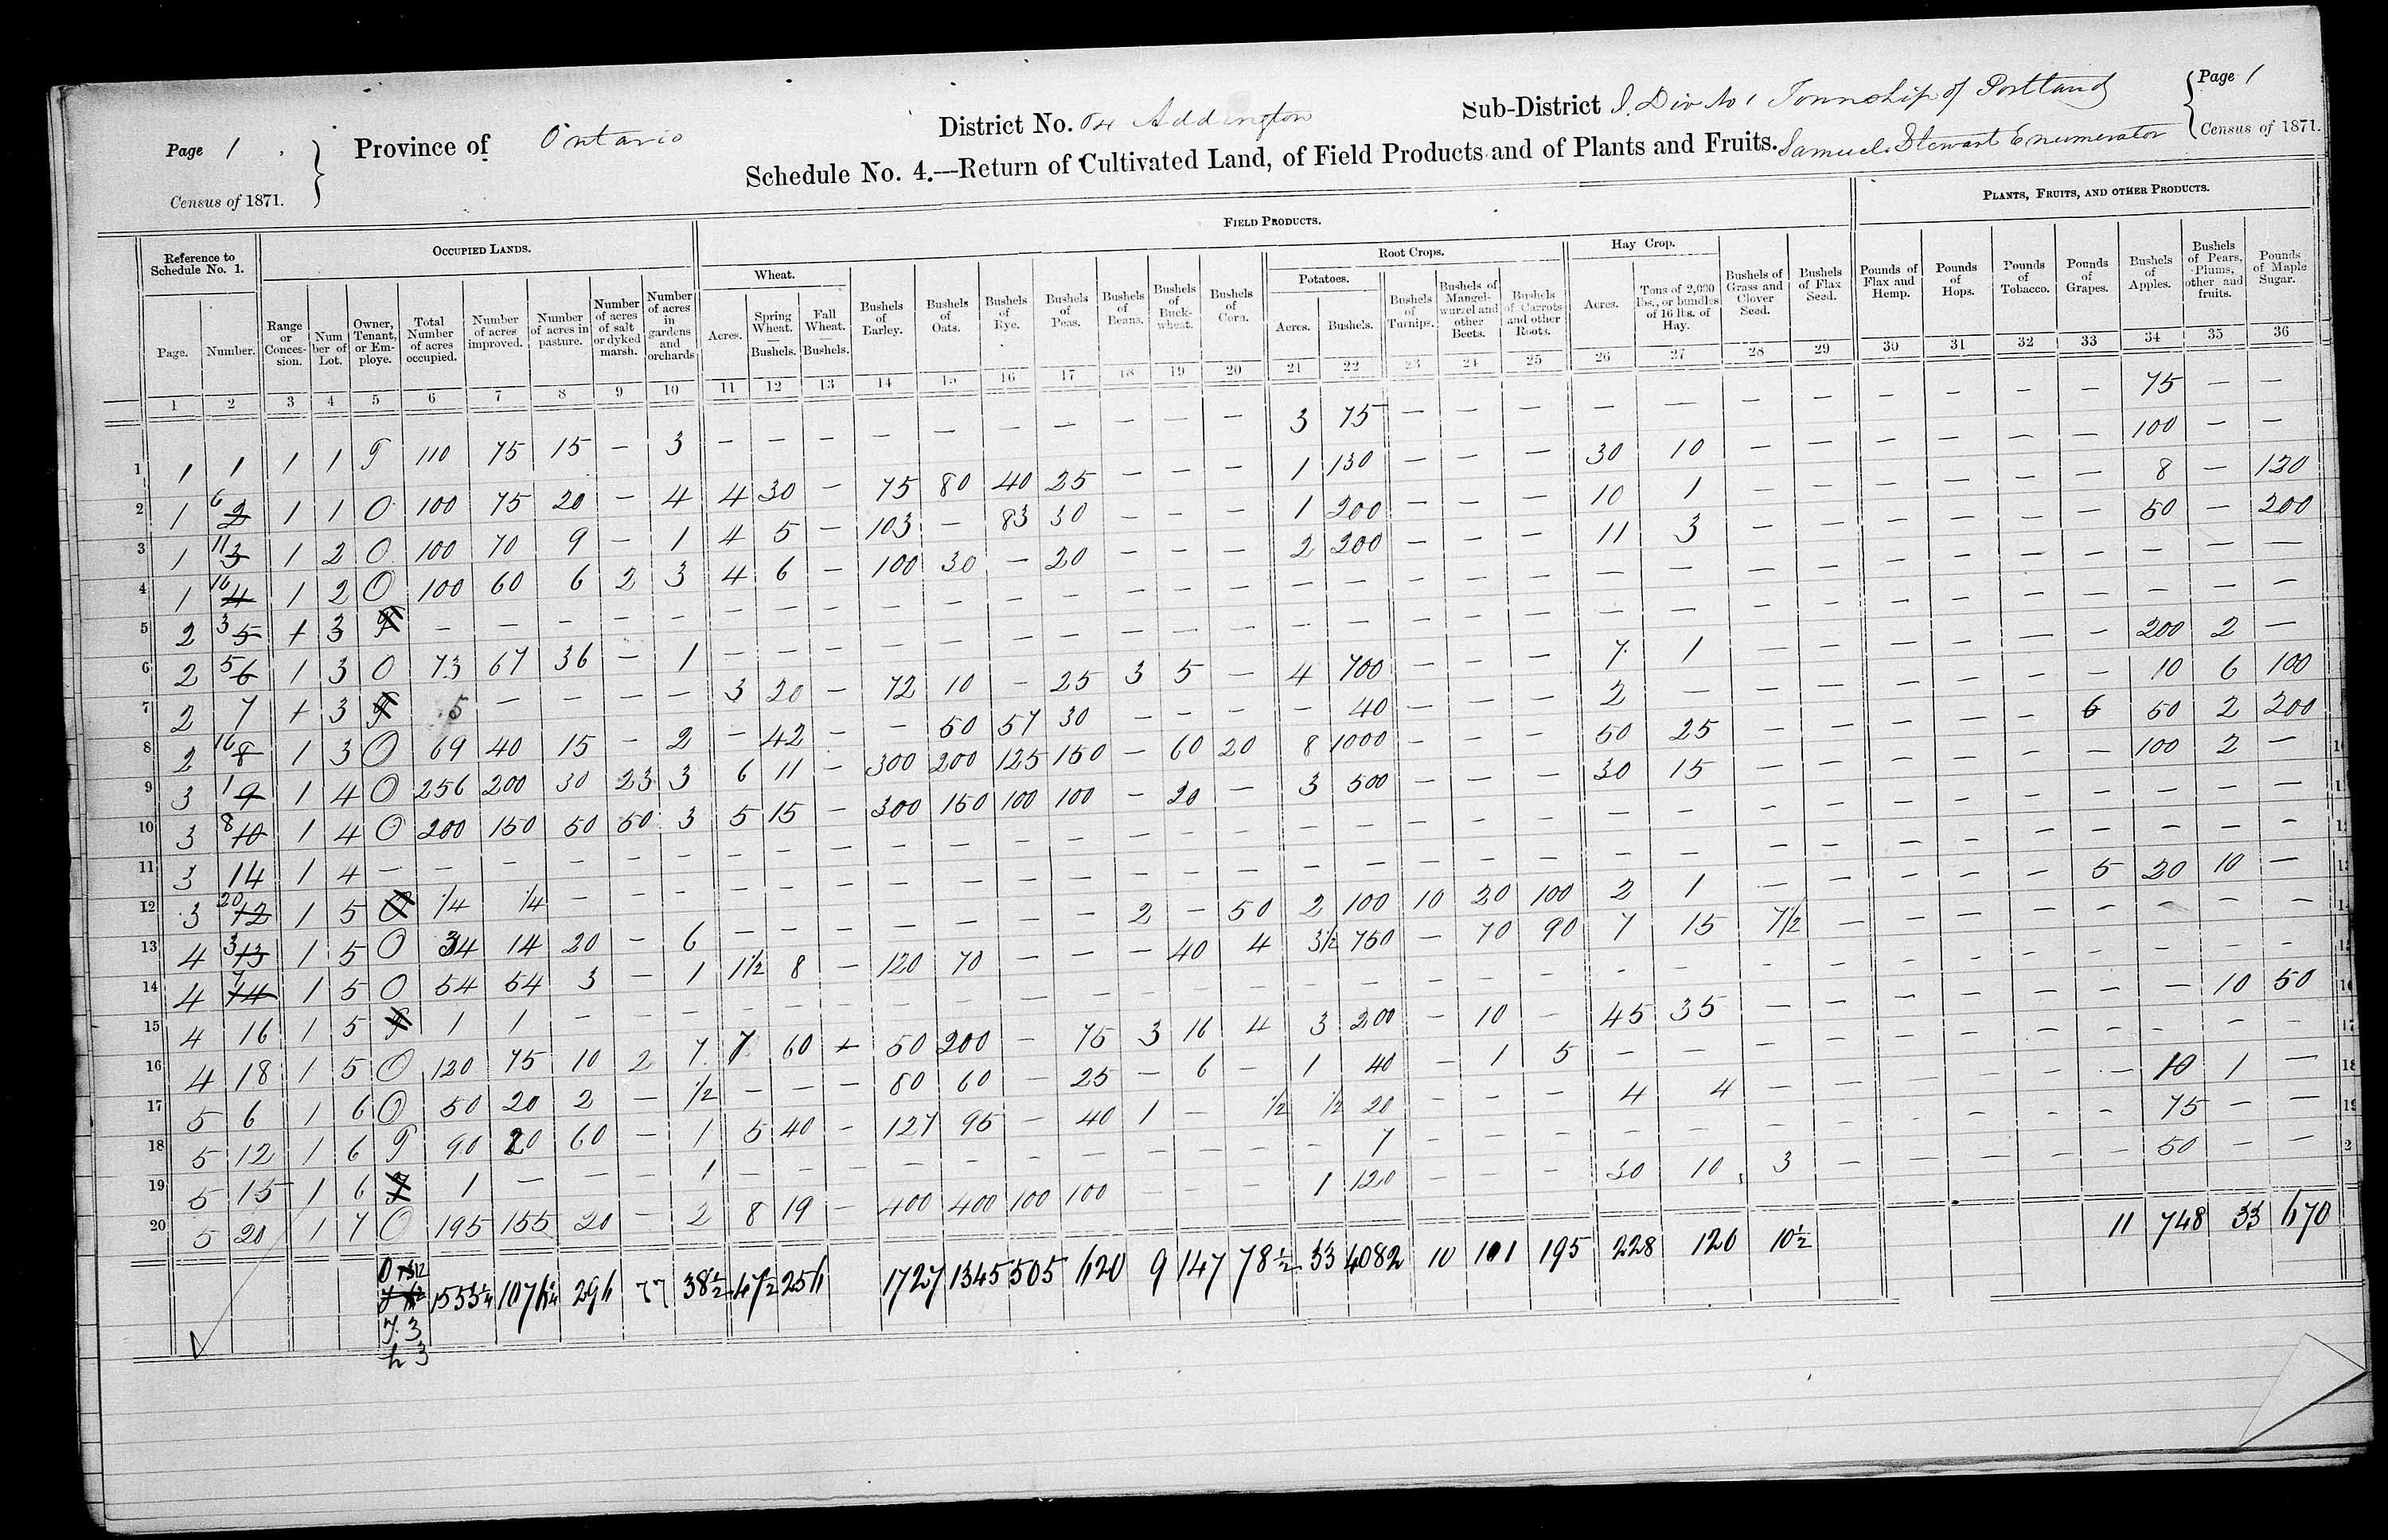 Page 1 Census of 1871. Province of Ontario District No. 64 Addington Sub-District I. Div No 1 Township of Portland Page 1 Census of 1871.
Schedule No. 4.—Return of Cultivated Land, of Field Products and of Plants and Fruits. Samuel Stewart Enumerator
Reference to Schedule No. 1. | OCCUPIED LANDS. | FIELD PRODUCTS. | PLANTS, FRUITS, AND OTHER PRODUCTS.
Wheat. | Root Crops. | Potatoes. | Hay Crop.
Page. | Number. | Range or Concession. | Number of Lot. | Owner, Tenant, or Employe. | Total Number of acres occupied. | Number of acres improved. | Number of acres in pasture. | Number of acres of salt or dyked marsh. | Number of acres in gardens and orchards | Acres. | Spring Wheat. — Bushels. | Fall Wheat. — Bushels. | Bushels of Barley. | Bushels of Oats. | Bushels of Rye. | Bushels of Peas. | Bushels of Beans. | Bushels of Buck-wheat. | Bushels of Corn. | Acres. | Bushels. | Bushels of Turnips. | Bushels of Mangel-wurzel and other Beets. | Bushels of Carrots and other Roots. | Acres. | Tons of 2,000 lbs., or bundles of 16 lbs. of Hay. | Bushels of Grass and Clover Seed. | Bushels of Flax Seed. | Pounds of Flax and Hemp. | Pounds of Hops. | Pounds of Tobacco. | Pounds of Grapes. | Bushels of Apples. | Bushels of Pears, Plums, other and fruits. | Pounds of Maple Sugar.
1 2 3 4 5 6 7 8 9 10 11 12 13 14 15 16 17 18 19 20 21 22 23 24 25 26 27 28 29 30 31 32 33 34 35 36
1 1 1 1 1 T 110 75 15 — 3 — — — — — — — — — — 3 75 — — — — — — — — — — — 75 — —
2 1 6 2 1 1 O 100 75 20 — 4 4 30 — 75 80 40 25 — — — 1 130 — — — 30 10 — — — — — — 100 — —
3 1 11 3 1 2 O 100 70 9 — 1 4 5 — 103 — 83 30 — — — 1 200 — — — 10 1 — — — — — — 8 — 120
4 1 16 4 1 2 O 100 60 6 2 3 4 6 — 100 30 — 20 — — — 2 200 — — — 11 3 — — — — — — 50 — 200
5 2 3 5 1 3 T — — — — — — — — — — — — — — — — — — — — — — — — — — — — — — —
6 2 5 6 1 3 O 73 67 36 — 1 — — — — — — — — — — — — — — — — — — — — — — — — — —
7 2 7 1 3 T 5 — — — — 3 20 — 72 10 — 25 3 5 — 4 700 — — — 7 1 — — — — — — 200 2 —
8 2 16 8 1 3 O 69 40 15 — 2 — 42 — — 50 57 30 — — — — 40 — — — 2 — — — — — — — 10 6 100
9 3 1 9 1 4 O 256 200 30 23 3 6 11 — 300 200 125 150 — 60 20 8 1000 — — — 50 25 — — — — — 6 50 2 200
10 3 8 10 1 4 O 200 150 50 50 3 5 15 — 300 150 100 100 — 20 — 3 500 — — — 30 15 — — — — — — 100 2 —
11 3 14 1 4 — — — — — — — — — — — — — — — — — — — — — — — — — — — — — — — —
12 3 20 12 1 5 O 1/4 1/4 — — — — — — — — — — — — — — — — — — — — — — — — — — — — —
13 4 3 13 1 5 O 34 14 20 — 6 — — — — — — — 2 — 50 2 100 10 20 100 2 1 — — — — — 5 20 10 —
14 4 7 14 1 5 O 54 54 3 — 1 1 1/2 8 — 120 70 — — — 40 4 3 1/2 750 — 70 90 7 15 7 1/2 — — — — — — — —
15 4 16 1 5 T 1 1 — — — — — — — — — — — — — — — — — — — — — — — — — — — — —
16 4 18 1 5 O 120 75 10 2 7 7 60 + 50 200 — 75 3 16 4 3 200 — 10 — 45 35 — — — — — — — 10 50
17 5 6 1 6 O 50 20 2 — 1/2 — — — 80 60 — 25 — 6 — 1 40 — 1 5 — — — — — — — — — — —
18 5 12 1 6 T 90 20 60 — 1 5 40 — 127 95 — 40 1 — 1/2 1/2 20 — — — 4 4 — — — — — — 10 1 —
19 5 15 1 6 T 1 — — — 1 — — — — — — — — — — — 7 — — — — — — — — — — — 75 — —
20 5 20 1 7 O 195 155 20 — 2 8 19 — 400 400 100 100 — — — 1 120 — — — 30 10 3 — — — — — 50 — —
O 12 1553 1/4 107 296 77 38 1/2 47 1/2 256 1727 1345 505 620 9 147 78 1/2 33 4082 10 101 195 228 120 10 1/2 11 748 33 670
T. 3
3